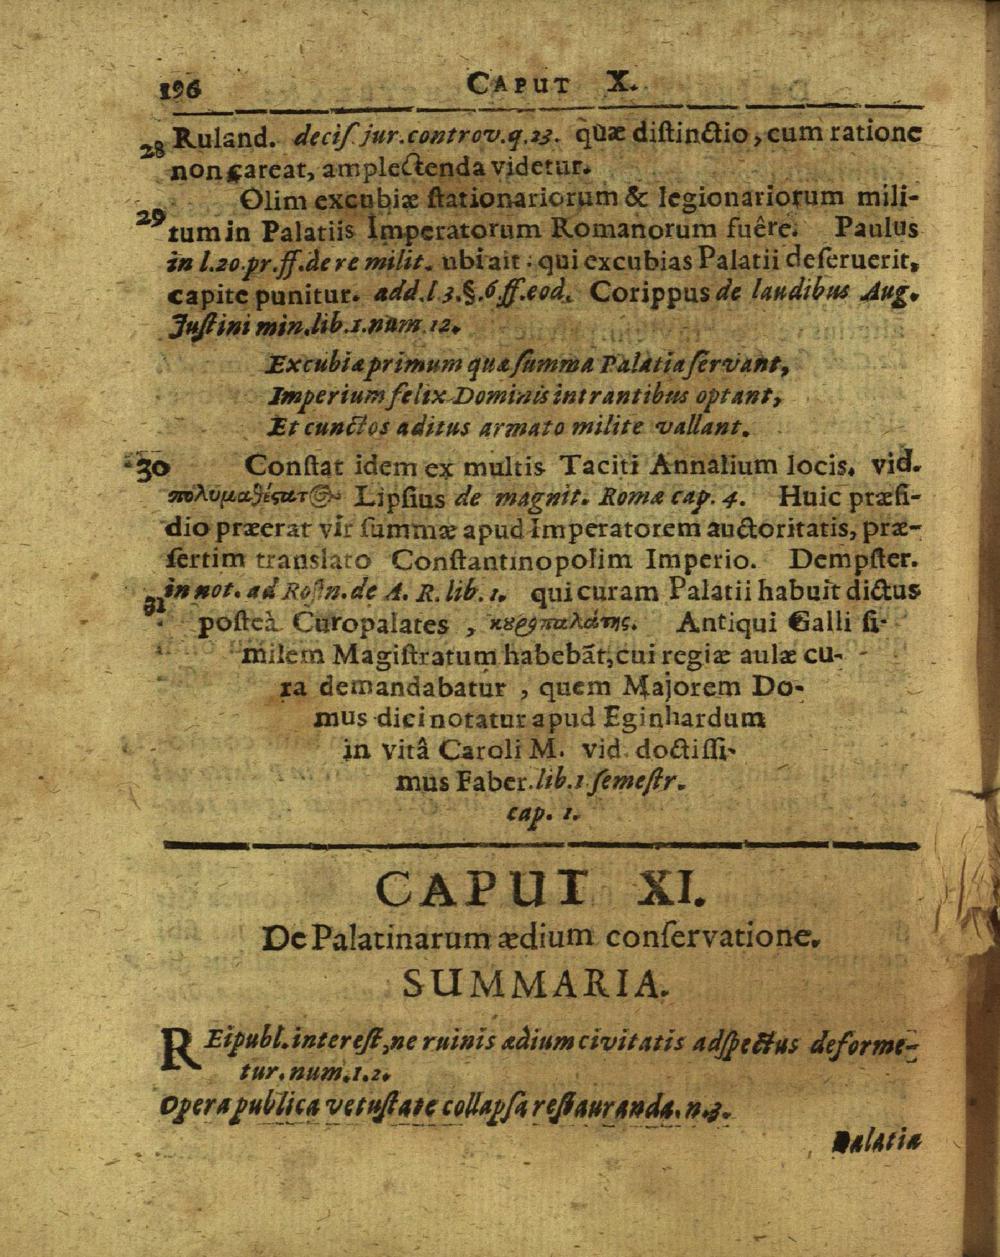 196 CAPUT X.
28 Ruland. deciſ. jur. controv. q. 23. quæ diſtinctio, cum ratione
non careat, amplectenda videtur.
29 Olim excubiæ ſtationariorum & legionariorum mili-
tum in Palatiis Imperatorum Romanorum fuêre. Paulus
in l. 20. pr. ff. de re milit. ubi ait: qui excubias Palatii deſeruerit,
capite punitur. add. l 3. §. 6 ff. eod. Corippus de laudibus Aug.
Juſtini min. lib. 1. num 12.
Excubiæ primum quæ ſumma Palatia ſervant,
Imperium felix Dominis intrantibus optant,
Et cunctos aditus armato milite vallant.
30 Conſtat idem ex multis Taciti Annalium locis. vid.
πολυμαθέςατ@ Lipſius de magnit. Romæ cap. 4. Huic præſi-
dio præerat vir ſummæ apud Imperatorem auctoritatis, præ-
ſertim translato Conſtantinopolim Imperio. Dempſter.
in not. ad Roſin. de A. R. lib. 1. qui curam Palatii habuit dictus
31 poſteà Curopalates, κουροπαλάτης. Antiqui Galli ſi-
milem Magiſtratum habebãt, cui regiæ aulæ cu-
ra demandabatur, quem Majorem Do-
mus dici notatur apud Eginhardum
in vitâ Caroli M. vid. doctiſſi-
mus Faber. lib. 1 ſemeſtr.
cap. 1.
CAPUT XI.
De Palatinarum ædium conſervatione.
SUMMARIA.
REipubl. intereſt, ne ruinis ædium civitatis adſpectus deforme-
tur. num. 1. 2.
Opera publica vetuſtate collapſa reſtauranda. n. 3.
Palatia